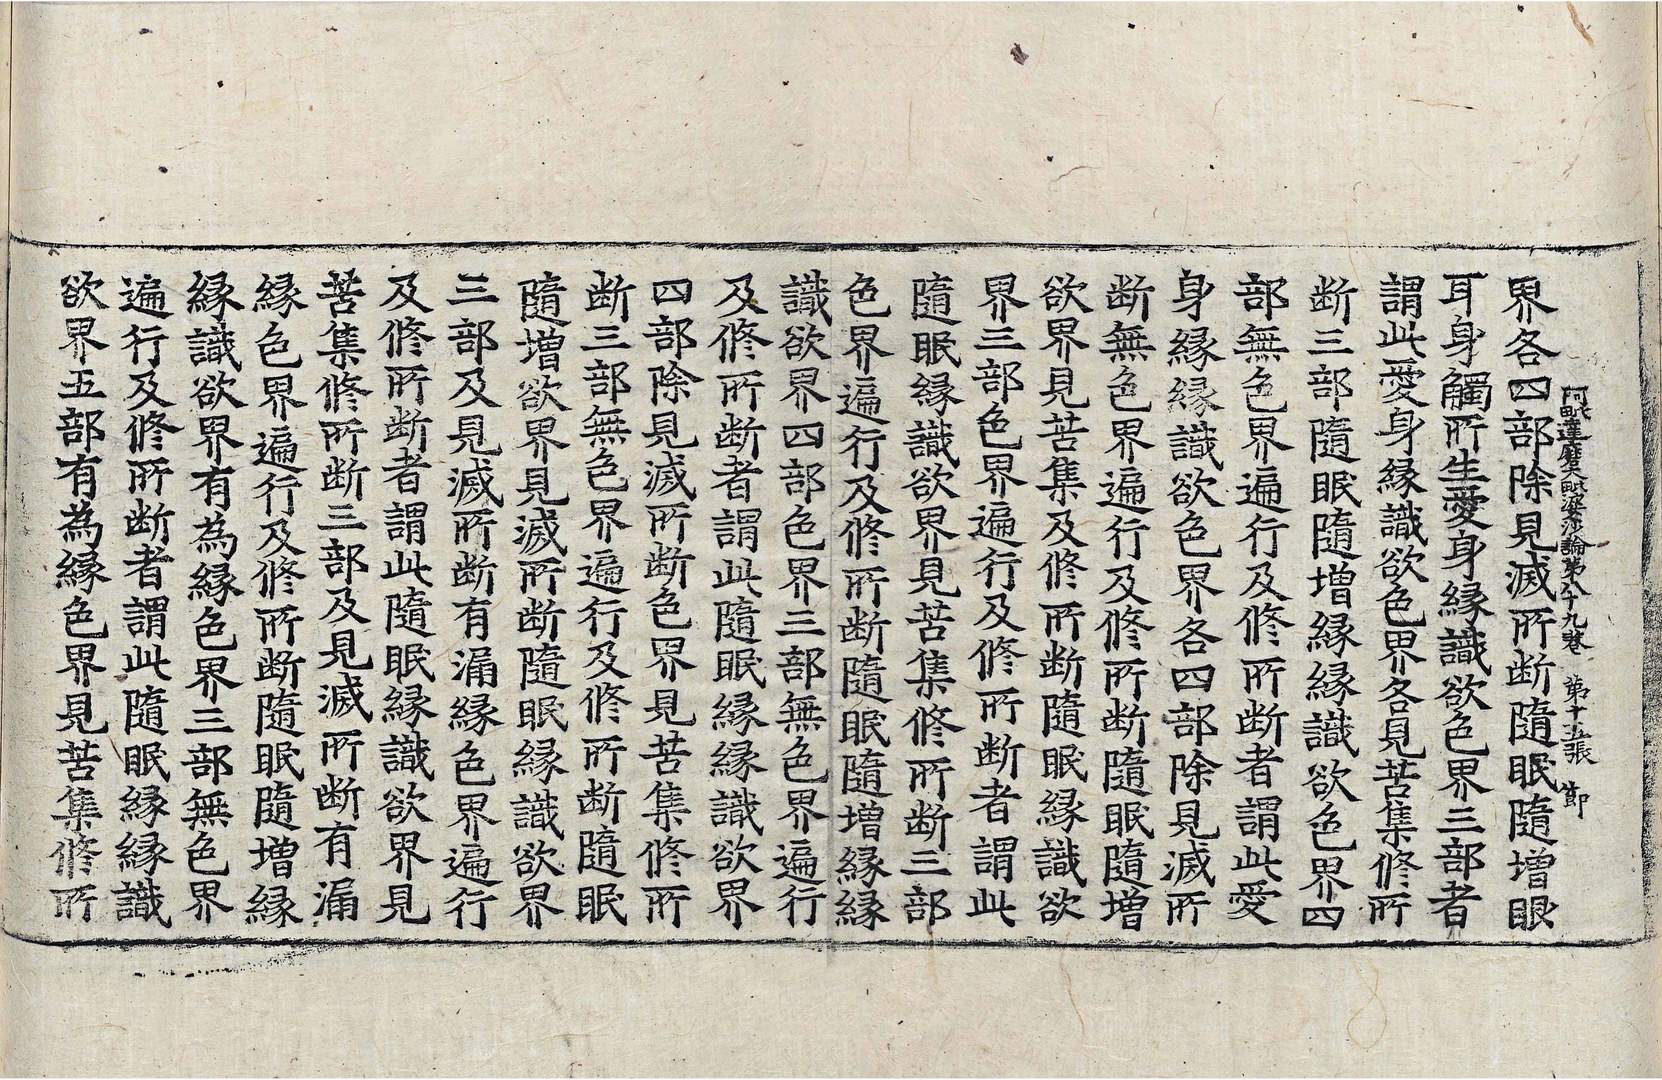 阿毗達磨大毗婆沙論第八十九卷 第十五張 節
界各四部除見滅所断隨眠隨增眼
耳身觸所生愛身緣識欲色界三部者
謂此愛身緣識欲色界各見苦集修所
断三部隨眠隨增緣緣識欲色界四
部無色界遍行及修所断者謂此愛
身緣緣識欲色界各四部除見滅所
断無色界遍行及修所断隨眠隨增
欲界見苦集及修所断隨眠緣識欲
界三部色界遍行及修所断者謂此
隨眠緣識欲界見苦集修所断三部
色界遍行及修所断隨眠隨增緣緣
識欲界四部色界三部無色界遍行
及修所断者謂此隨眠緣緣識欲界
四部除見滅所断色界見苦集修所
断三部無色界遍行及修所断隨眠
隨增欲界見滅所断隨眠緣識欲界
三部及見滅所断有漏緣色界遍行
及修所断者謂此隨眠緣識欲界見
苦集修所断三部及見滅所断有漏
緣色界遍行及修所断隨眠隨增緣
緣識欲界有為緣色界三部無色界
遍行及修所断者謂此隨眠緣緣識
欲界五部有為緣色界見苦集修所